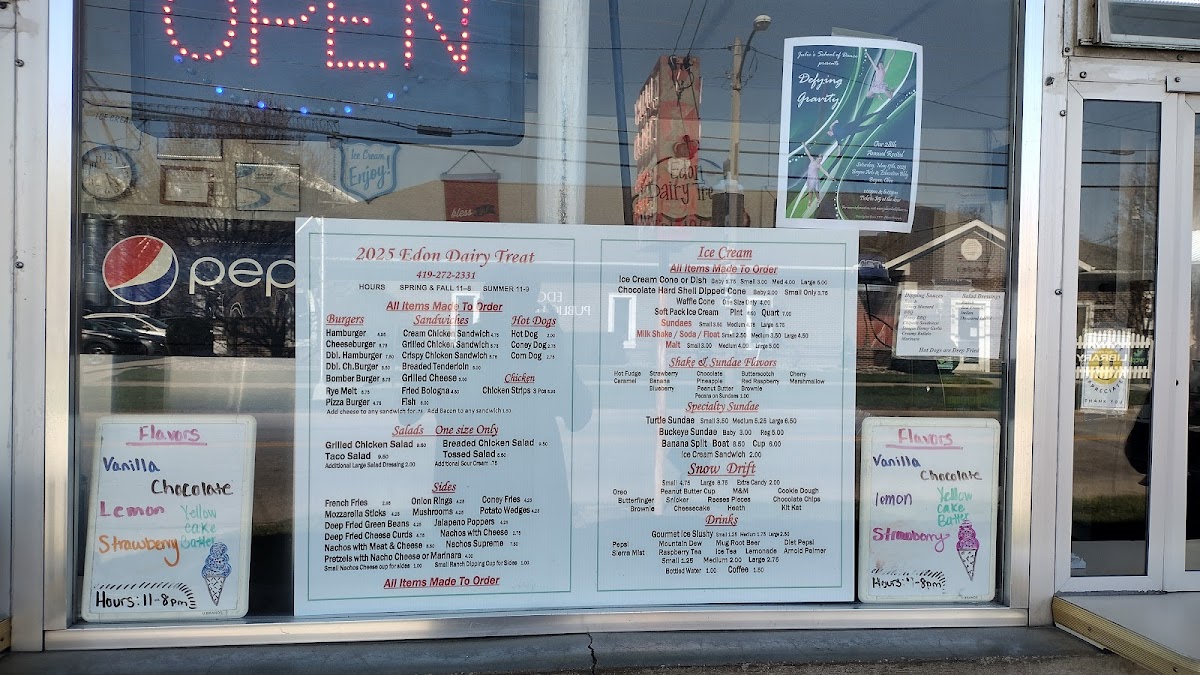 OPEN
Ice Cream
Enjoy!
bless
Edon
Dairy Treat
Julie's School of Dance
presents
Defying
Gravity
Our 28th
Annual Recital
pep
2025 Edon Dairy Treat
419-272-2331
HOURS SPRING & FALL 11-8 SUMMER 11-9
All Items Made To Order
Burgers
Hamburger
Cheeseburger
Dbl. Hamburger
Dbl. Ch.Burger
Bomber Burger
Rye Melt
Pizza Burger
Sandwiches
Cream Chicken Sandwich
Grilled Chicken Sandwich
Crispy Chicken Sandwich
Breaded Tenderloin
Grilled Cheese
Fried Bologna
Fish
Hot Dogs
Hot Dog
Coney Dog
Corn Dog
Chicken
Chicken Strips
Add cheese to any sandwich for .75 Add Bacon to any sandwich
Salads One size Only
Grilled Chicken Salad Breaded Chicken Salad
Taco Salad Tossed Salad
Additional Large Salad Dressing 2.00 Additional Sour Cream .75
Sides
French Fries Onion Rings Coney Fries
Mozzarella Sticks Mushrooms Potato Wedges
Deep Fried Green Beans Jalapeno Poppers
Deep Fried Cheese Curds Nachos with Cheese
Nachos with Meat & Cheese Nachos Supreme
Pretzels with Nacho Cheese or Marinara
Small Nachos Cheese cup for sides 1.00 Small Ranch Dipping Cup for Sides 1.00
All Items Made To Order
Ice Cream
All Items Made To Order
Ice Cream Cone or Dish Small 3.00 Med 4.00 Large 5.00
Chocolate Hard Shell Dipped Cone Baby 2.00 Small Only 3.75
Waffle Cone One Size Only 4.00
Soft Pack Ice Cream Pint Quart 7.00
Sundaes Small Medium Large 5.75
Milk Shake / Soda / Float Small 2.50 Medium 3.50 Large 4.50
Malt Small 3.00 Medium 4.00 Large 5.00
Shake & Sundae Flavors
Hot Fudge Strawberry Chocolate Butterscotch Cherry
Caramel Banana Pineapple Red Raspberry Marshmallow
Blueberry Peanut Butter Brownie
Pecans on Sundaes 1.00
Specialty Sundae
Turtle Sundae Small 3.50 Medium 5.25 Large 6.50
Buckeye Sundae Baby 3.00 Reg 5.00
Banana Split Boat 8.50 Cup 6.00
Ice Cream Sandwich 2.00
Snow Drift
Small 4.75 Large 6.75 Extra Candy 2.00
Oreo Peanut Butter Cup M&M Cookie Dough
Butterfinger Snicker Reeses Pieces Chocolate Chips
Brownie Cheesecake Heath Kit Kat
Drinks
Gourmet Ice Slushy Small 1.25 Medium 1.75 Large 2.50
Pepsi Mountain Dew Mug Root Beer Diet Pepsi
Sierra Mist Raspberry Tea Ice Tea Lemonade Arnold Palmer
Small 1.25 Medium 2.00 Large 2.75
Bottled Water 1.00 Coffee 1.50
Dipping Sauces Salad Dressings
Hot Dogs are Deep Fried
LIBRARY
THANK YOU
Flavors
Vanilla
Chocolate
Lemon
Yellow
cake
Batter
Strawberry
Hours: 11-8pm
Flavors
Vanilla
Chocolate
lemon
Yellow
cake
Batter
Strawberry
Hours: 11-8pm